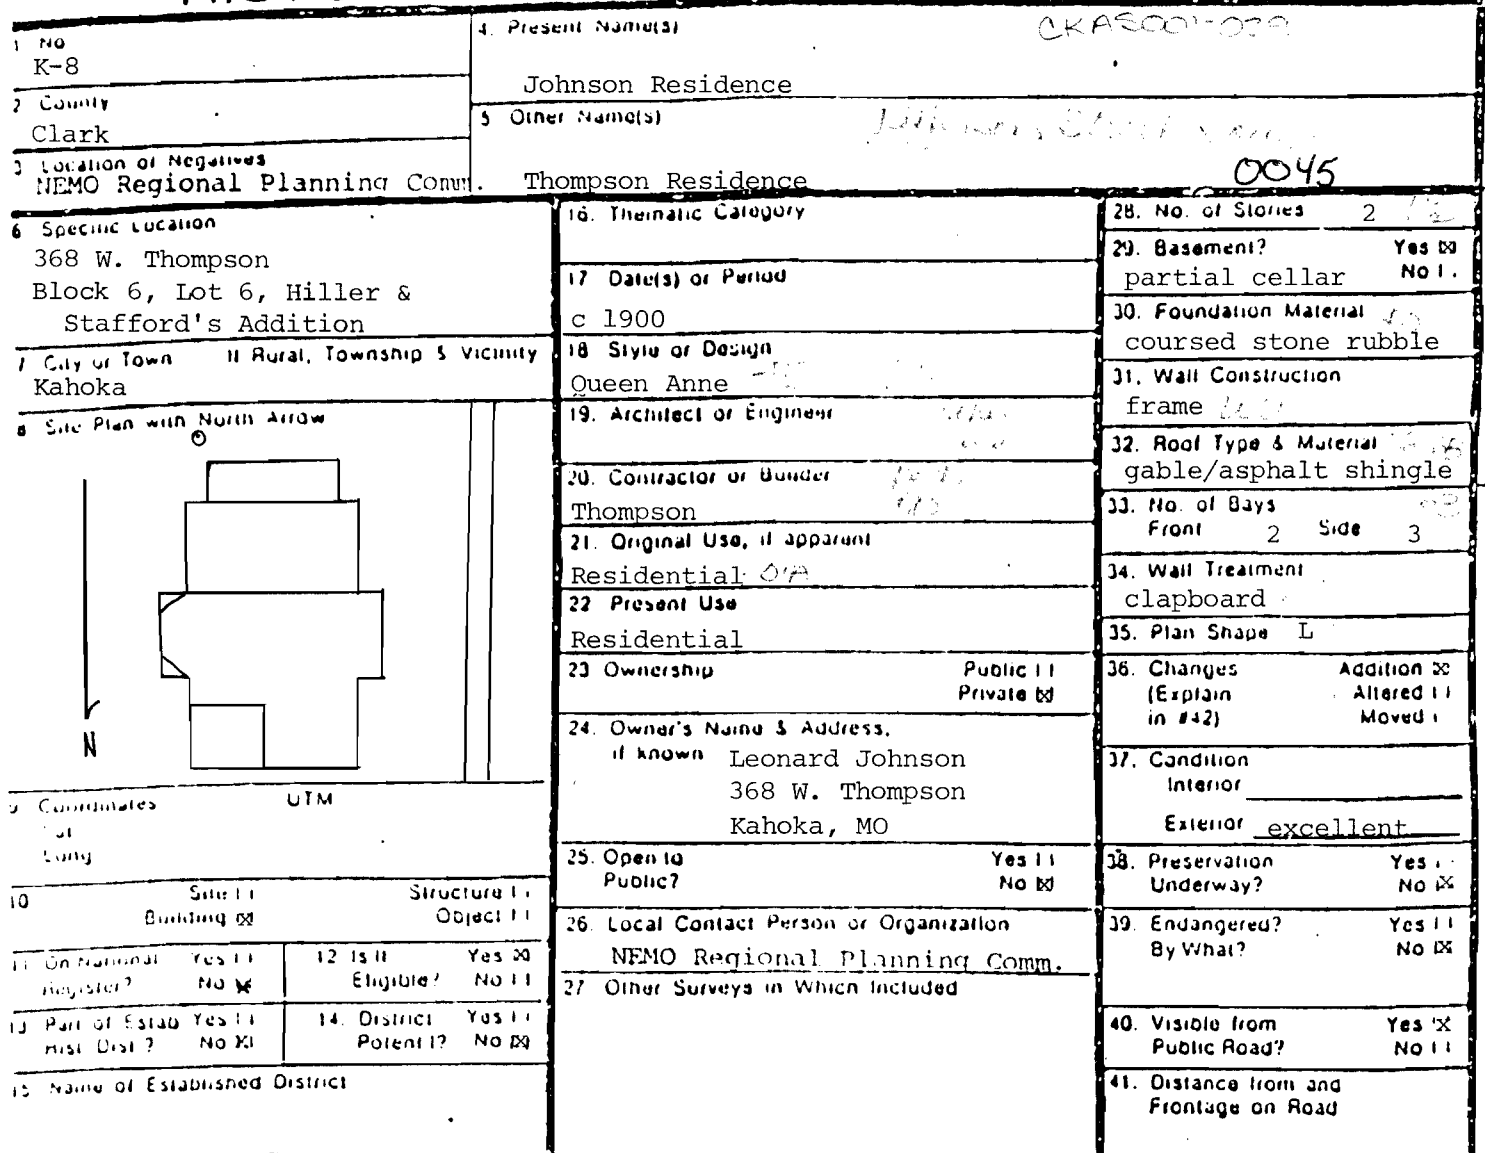 1 No
K-8
2 County
Clark
3 Location of Negatives
NEMO Regional Planning Comm.
4. Present Name(s)
Johnson Residence
5 Other Name(s)
Thompson Residence
0045
6 Specific Location
368 W. Thompson
Block 6, Lot 6, Hiller &
Stafford's Addition
7 City or Town If Rural, Township & Vicinity
Kahoka
8 Site Plan with North Arrow
N
9 Coordinates UTM
Lat
Long
10 Site Structure
Building Object
11 On National Register? Yes No
12 Is It Eligible? Yes No
13 Part of Estab Hist. Dist.? Yes No
14. District Potent'l? Yes No
15 Name of Established District
16. Thematic Category
17 Date(s) or Period
c 1900
18 Style or Design
Queen Anne
19. Architect or Engineer
20. Contractor or Builder
Thompson
21. Original Use, if apparent
Residential
22 Present Use
Residential
23 Ownership Public
Private
24. Owner's Name & Address,
if known Leonard Johnson
368 W. Thompson
Kahoka, MO
25. Open to Yes
Public? No
26. Local Contact Person or Organization
NEMO Regional Planning Comm.
27 Other Surveys in Which Included
28. No. of Stories 2
29. Basement? Yes
partial cellar No
30. Foundation Material
coursed stone rubble
31. Wall Construction
frame
32. Roof Type & Material
gable/asphalt shingle
33. No. of Bays
Front 2 Side 3
34. Wall Treatment
clapboard
35. Plan Shape L
36. Changes Addition
(Explain Altered
in #42) Moved
37. Condition
Interior
Exterior excellent
38. Preservation Yes
Underway? No
39. Endangered? Yes
By What? No
40. Visible from Yes
Public Road? No
41. Distance from and
Frontage on Road